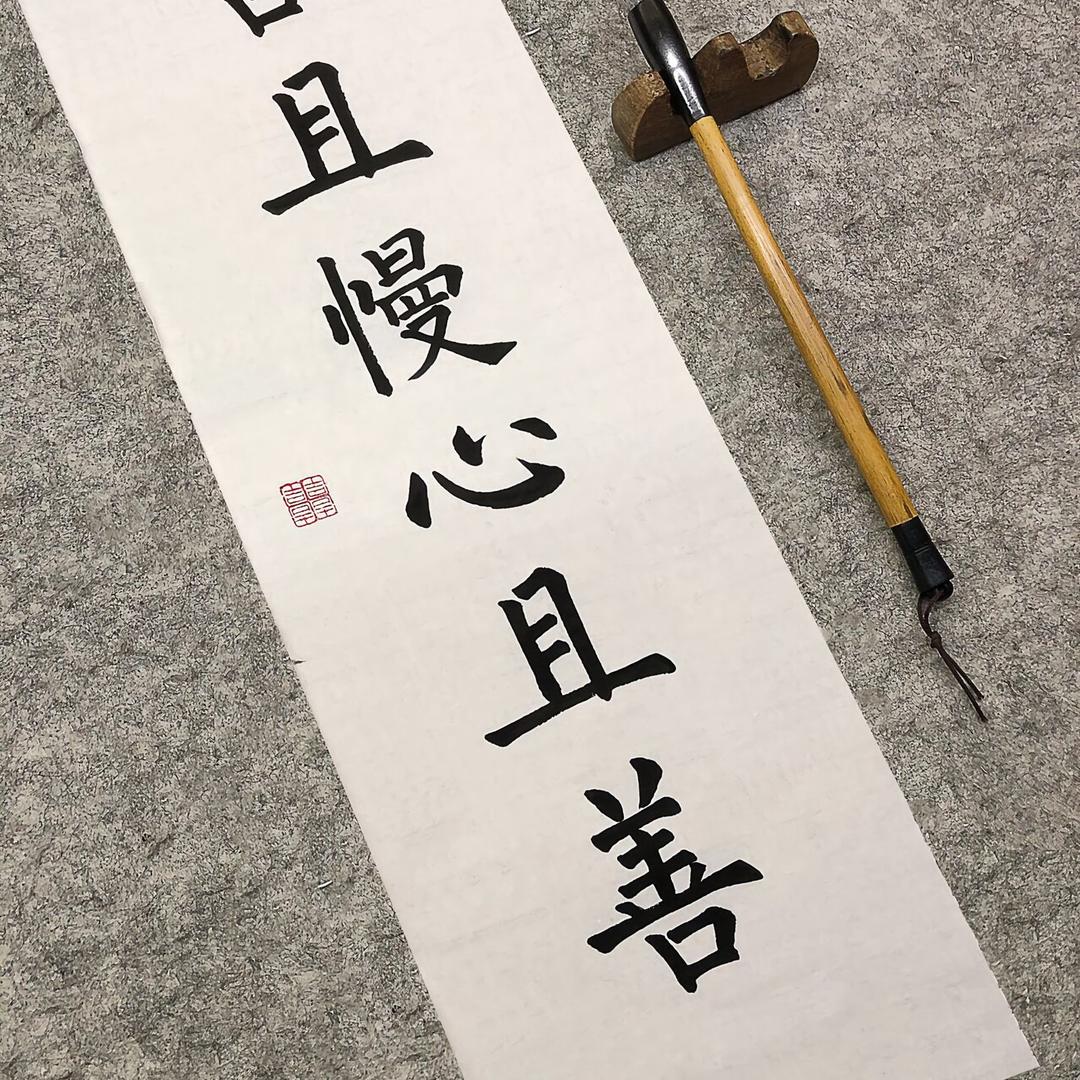 且慢心且善